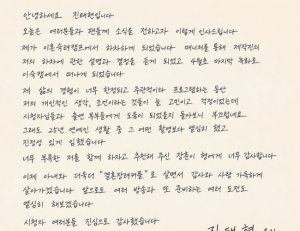 안녕하세요 진태현입니다
오늘은 여러분들과 팬들께 소식을 전하고자 이렇게 인사드립니다
제가 이혼숙려캠프에서 하차하게 되었습니다 매니저를 통해 제작진의
저의 하차에 관한 설명과 결정을 듣게 되었고 4월초 마지막 녹화로
이숙캠에서 떠나게 되었습니다
제 삶의 경험이 너무 한정되고 주관적이라 프로그램하는 동안
저의 개인적인 생각, 조언이라는 것들이 늘 고민이고 걱정이었는데
시청자님들과 출연 부부들에게 도움이 되었을지 돌아보니 부끄럽네요.
그래도 25년 연예인 생활 중 그 어떤 촬영보다 열심히 했고
진정성 있게 임했습니다
너무 부족한 저를 함께 하자고 추천해 주신 장훈이 형에게 너무 감사합니다
이제 아내와 더욱더 "결혼장려커플"로 살면서 감사와 사랑 가득하게
살아가겠습니다 앞으로도 여러 방송과 또 준비하는 여러 도전도
열심히 해보겠습니다
시청자 여러분들 진심으로 감사했습니다
진태현